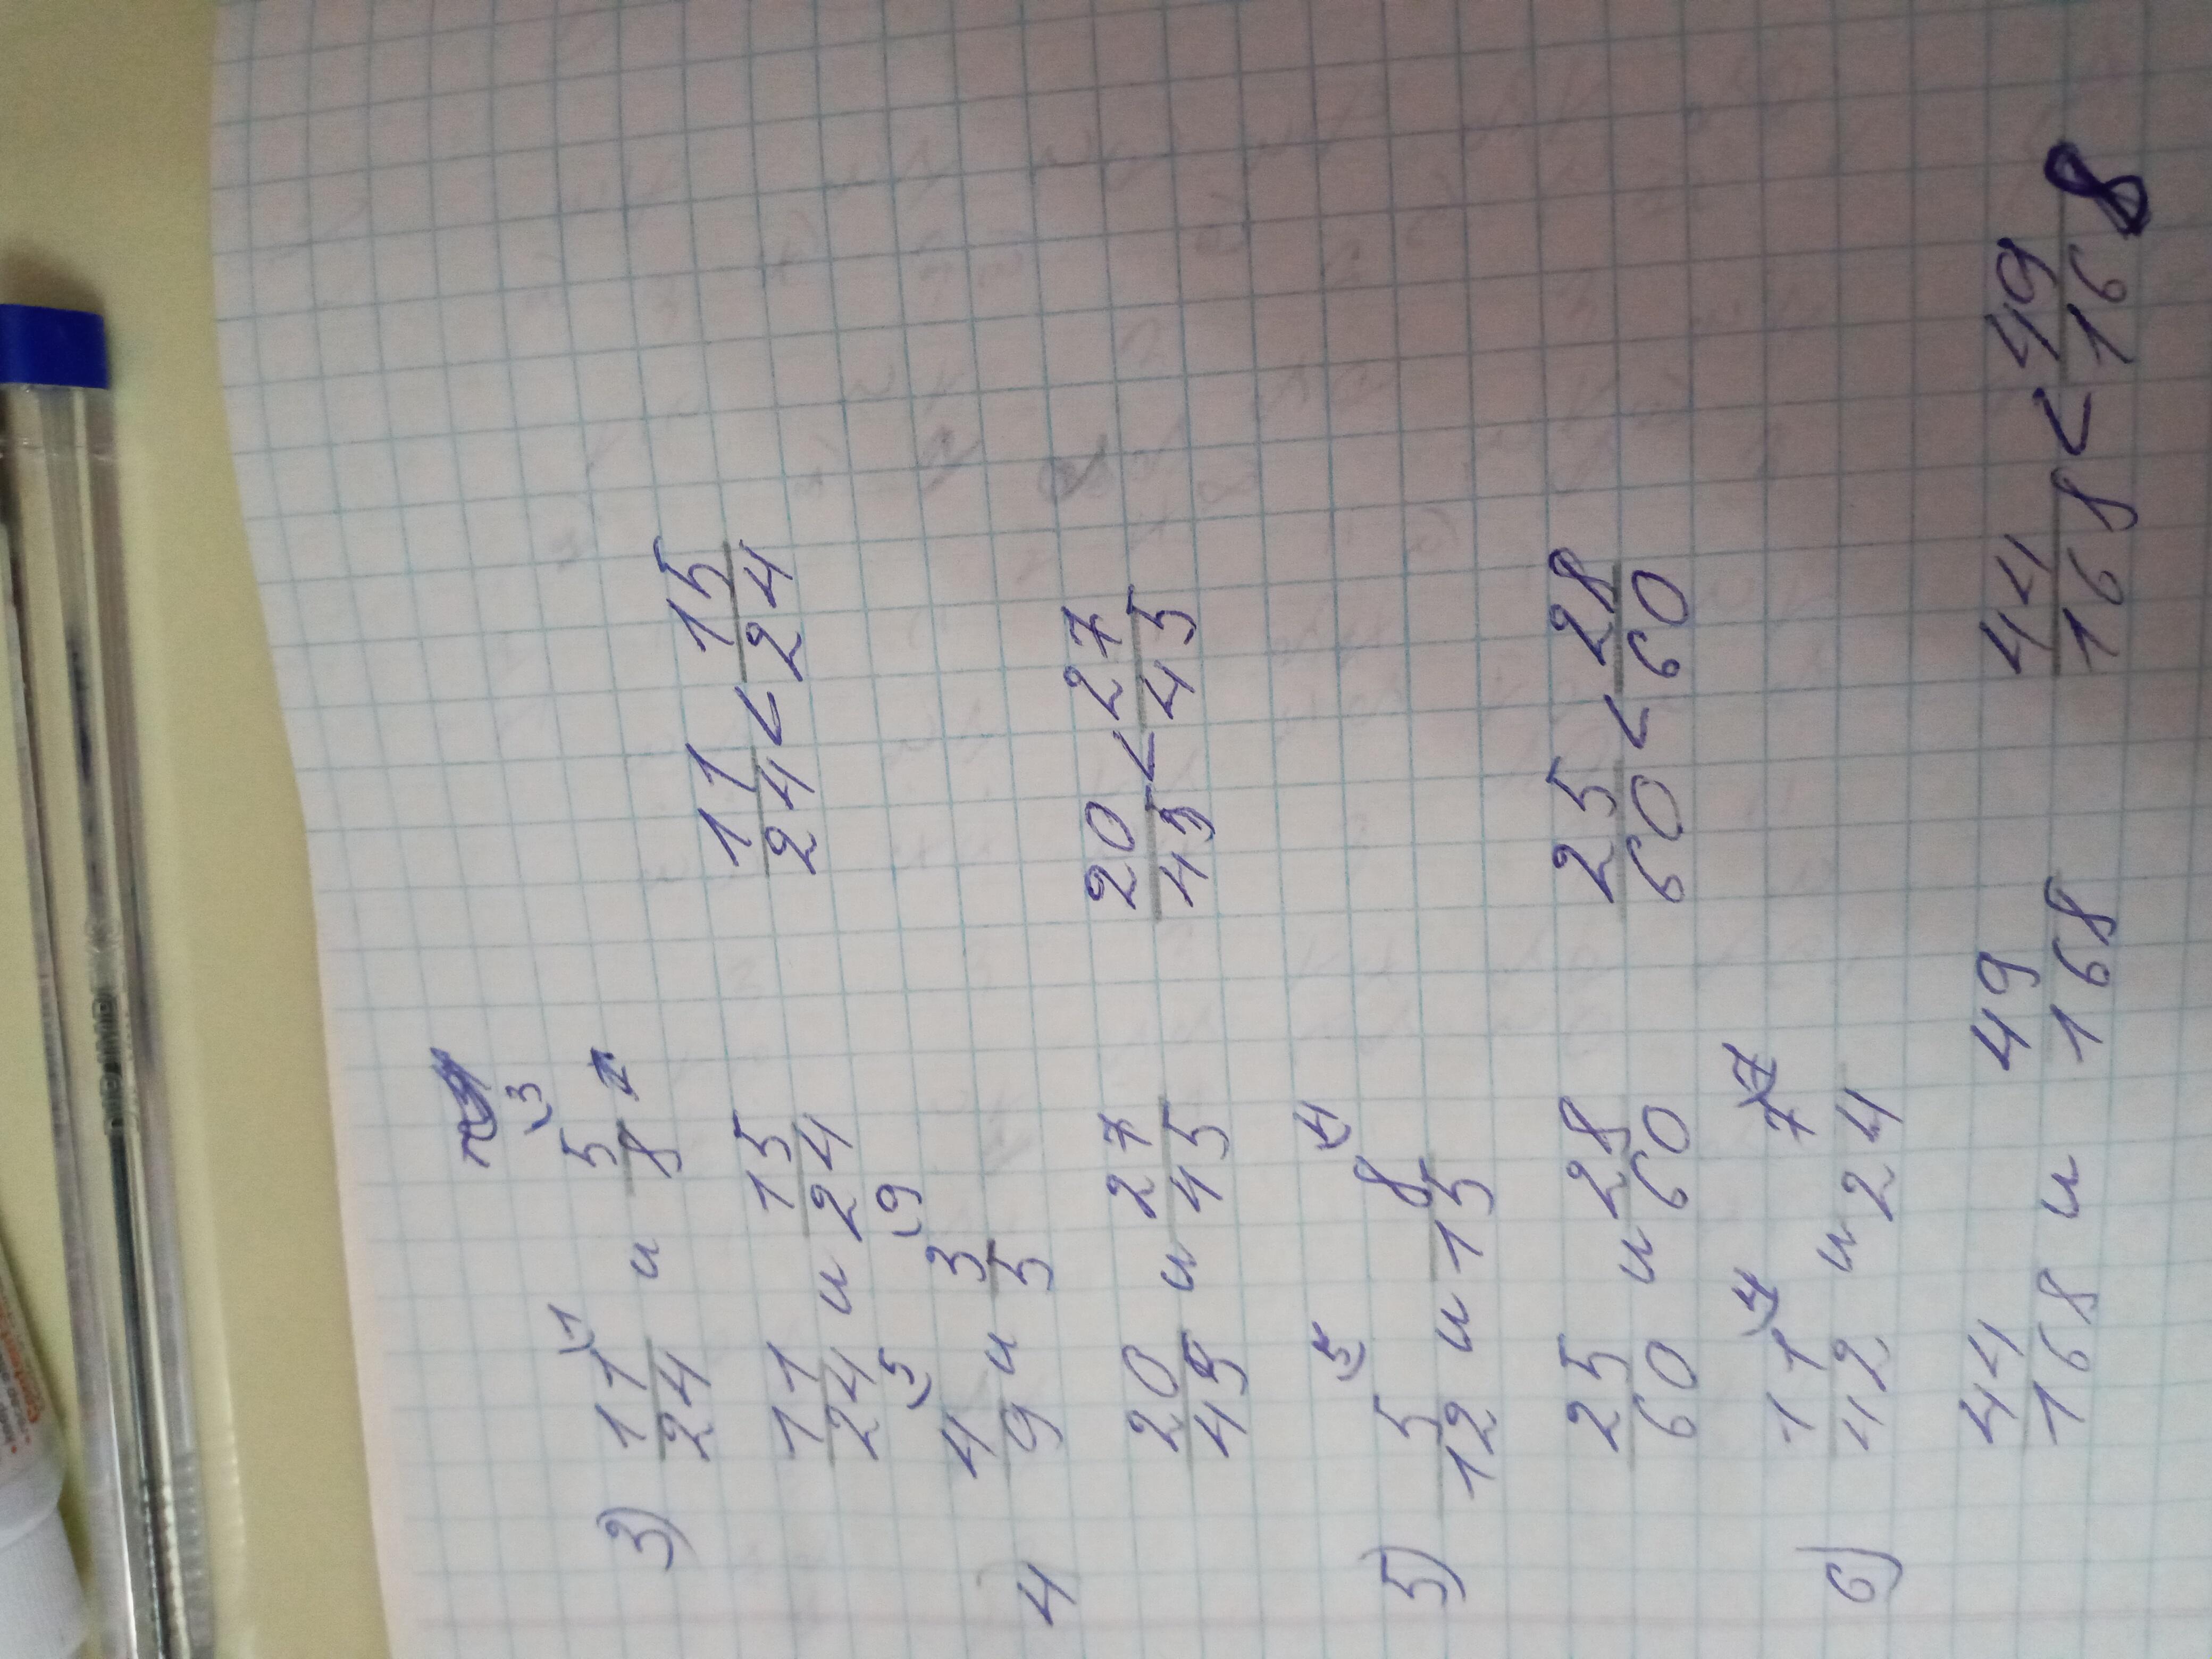 3) 11/24 \1 и 5/8 \3
11/24 и 15/24 11/24 < 15/24
4 4/9 \5 и 3/5 \9
20/45 и 27/45 20/45 < 27/45
5) 5/12 \5 и 8/15 \4
25/60 и 28/60 25/60 < 28/60
6) 11/42 \4 и 7/24 \7
44/168 и 49/168 44/168 < 49/168